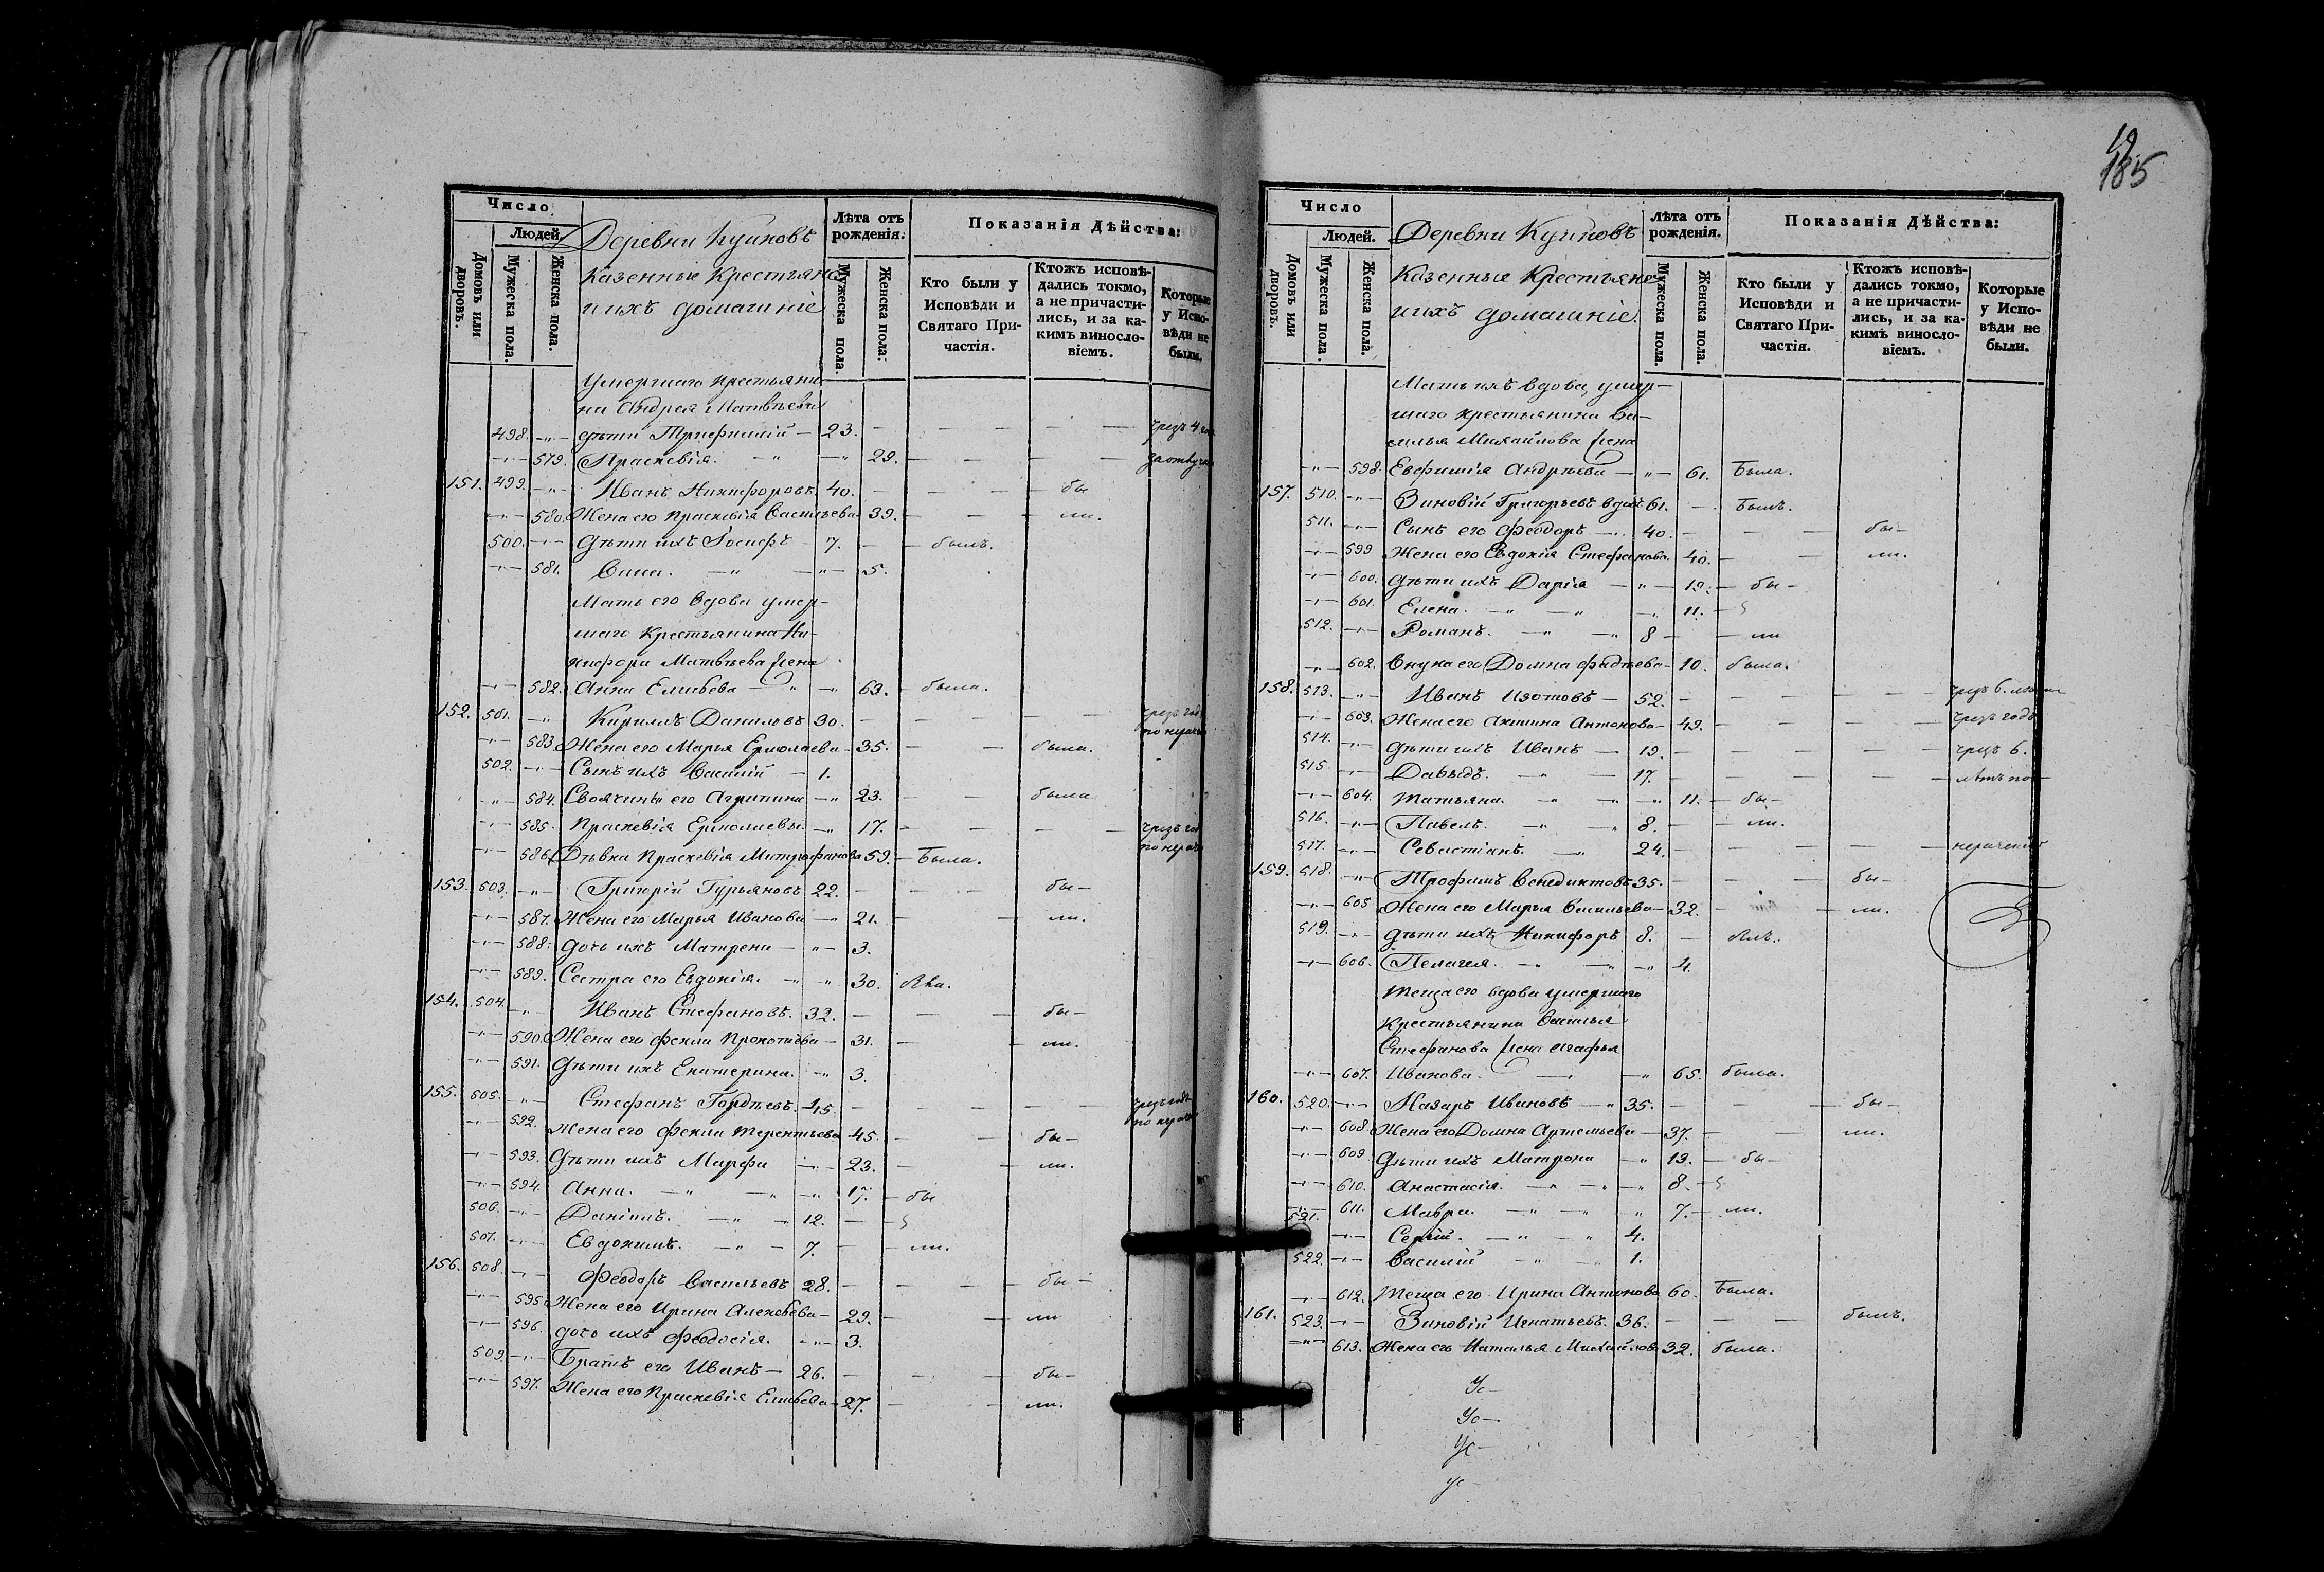 Число
Людей.
Домовъ или дворовъ.
Мужеска пола.
Женска пола.
Деревни Куиновъ
Казенные Крестьяне
и ихъ домашніе
Лѣта отъ рожденія.
Мужеска пола.
Женска пола.
Показанія Дѣйства:
Кто были у Исповѣди и Святаго Причастія.
Ктожъ исповѣдались токмо, а не причастились, и за какимъ винословіемъ.
Которые у Исповѣди не были.
Умершаго крестьяни-
на Андрея Матвѣева
498. дѣти Трифилій 23. чрезъ 4
579. Праскевія. 29. за отлуч
151. 499. Иванъ Никифоровъ. 40. бы
580. Жена его Праскевія Васильева 39. ли.
500. Дѣти ихъ Іосифъ 7. былъ.
581. 5.
Мать его вдова умер-
шаго крестьянина Ни-
кифора Матвѣева жена
582. Анна Елисѣева 63. была.
152. 501. Кириллъ Даниловъ 30. чрезъ годъ
583. Жена его Марья Ермолаева 35. была.
502. Сынъ ихъ Василій 1.
584. Своячины его Агрипина 23. была
585. Праскевія Ермолаевы 17. чрезъ го
586. Дѣвка Праскевія Митрофанова 59. Была.
153. 503. Григорій Гурьяновъ 22. бы-
587. Жена его Марья Иванова 21. ли.
588. дочь ихъ Матрена 3.
589. Сестра его Евдокія. 30.
154. 504. Иванъ Стефановъ. 32. бы-
590. Жена его Фекла Прокопиева 31. ли.
591. Дѣти ихъ Екатерина. 3.
155. 505. Стефанъ Гордѣевъ. 45. чрезъ годъ
592. Жена его Фекла Терентьева 45. бы-
593. Дѣти ихъ Марфа 23. ли.
594. Анна. 17. бы
506. Даніилъ. 12.
507. Евдокимъ. 7. ли.
156. 508. Феодоръ Васильевъ 28. бы-
595. Жена его Ирина Алексѣева 29. ли
596. дочь ихъ Феодосія. 3.
509. Братъ его Иванъ 26. бы-
597. Жена его Праскевія Елисѣева 27. ли.
19.
185
Число
Людей.
Домовъ или дворовъ.
Мужеска пола.
Женска пола.
Деревни Куиновъ
Казенные Крестьяне
и ихъ домашніе.
Лѣта отъ рожденія.
Мужеска пола.
Женска пола.
Показанія Дѣйства:
Кто были у Исповѣди и Святаго Причастія.
Ктожъ исповѣдались токмо, а не причастились, и за какимъ винословіемъ.
Которые у Исповѣди не были.
Мать ихъ вдова, умер-
шаго крестьянина Ва-
силья Михайлова жена
598. Евфимія Андрѣева 61. Была.
157. 510. Зиновій Григорьевъ вдов 61. Былъ.
511. Сынъ его Феодоръ 40. бы-
599 Жена его Евдокія Стефанова 40. ли.
600. Дѣти ихъ Дарія 19. бы-
601. Елена. 11.
512. Романъ. 8 ли
602. Внука его Домна Фадѣева 10. была.
158. 513. Иванъ Изотовъ 52. чрезъ 6.
603. Жена его Акилина Антонова 49. чрезъ годъ
514. дѣти ихъ Иванъ 19. чрезъ 6.
515. Давыдъ. 17. лѣтъ по
604. Татьяна. 11. бы-
516. Павелъ. 8. ли.
517. Севастіанъ. 24. нерачению
159. 518. Трофимъ Венедиктовъ 35. бы-
605 Жена его Марья Васильева 32. ли.
519. дѣти ихъ Никифоръ 8.
606. Пелагея. 4.
Теща его вдова умершаго
Крестьянина Василья
Стефанова жена Агафья
607. Иванова. 65. была.
160. 520. Назаръ Ивановъ 35. бы-
608. Жена его Домна Артемьева 37. ли.
609. дѣти ихъ Матрона 13. бы-
610. Анастасія. 8.
611. Мавра. 7. ли.
521. Сергій. 4.
522. Василій 1.
612. Теща его Ирина Антонова 60. Была.
161. 523. Зиновій Игнатьевъ. 36. былъ.
613. Жена его Наталья Михайлова 32. была.